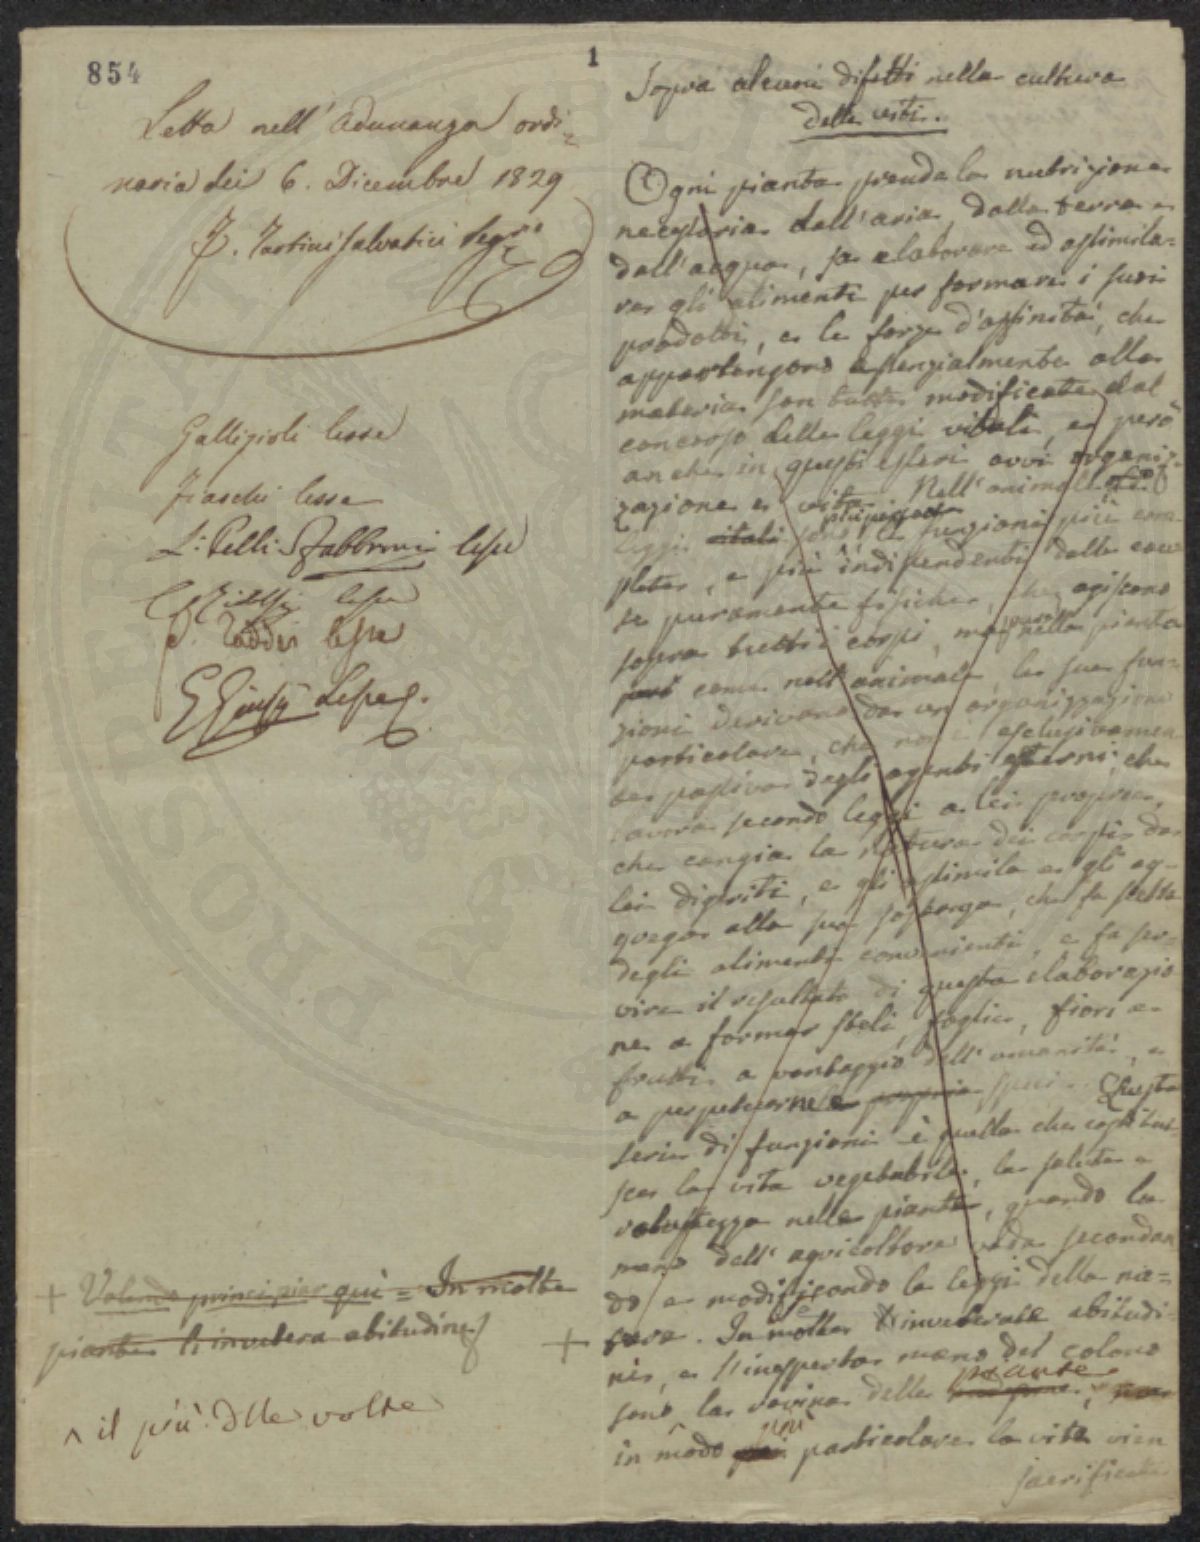 854
1
Letta nell' Adunanza ordi=
naria dei 6. Dicembre 1829
Tartini Salvatici Segr.
Gallizioli lesse
lesse
L: Pelli Fabbroni lesse
lesse
Taddei lesse
G Giusti Lesse
+ Volendo principiar qui = In molte
piante l'invetera abitudine
^ il più delle volte
Sopra alcuni difetti nella cultura
delle viti.
Ogni pianta prende la nutrizione
necessaria dall'aria, dalla terra e
dall'acqua, sa elaborare ed assimila=
re gli alimenti per formare i suoi
prodotti, e le forze d'affinità, che
appartengono essenzialmente alla
materia son tutte modificate dal
concorso delle leggi vitali, e però
anche in questi esseri avvi organiz=
zazione e vita. Nell'animale
leggi vitali più funzioni più com
plete, e più indipendenti dalle cau
se puramente fisiche, che agiscono
sopra tutti i corpi, ma nella pianta
però come nell'animale le sue fun=
zioni derivano da un organizzazione
particolare, che non è esclusivamen
te passiva degli agenti esterni, che
lavora secondo leggi a lei proprie,
che cangia la natura dei corpi da
lei digeriti, e gli assimila e gli ag=
grega alla sua sostanza, che fa scelta
degli alimenti convenienti, e fa ser=
vire il resultato di questa elaborazio
ne a formar steli, foglie, fiori e
frutti a vantaggio dell'umanità, e
a perpetuarne la propria specie. Questa
serie di funzioni è quella che costitui=
sce la vita vegetabile, la salute e
robustezza nelle piante, quando la
mano dell'agricoltore vada secondan
do e modificando le leggi della na=
tura. In molte l'inveterate abitudi=
+ ni, e l'inesperta mano del colono
sono la rovina delle piante, ma
in modo più particolare la vite vien
sacrificata